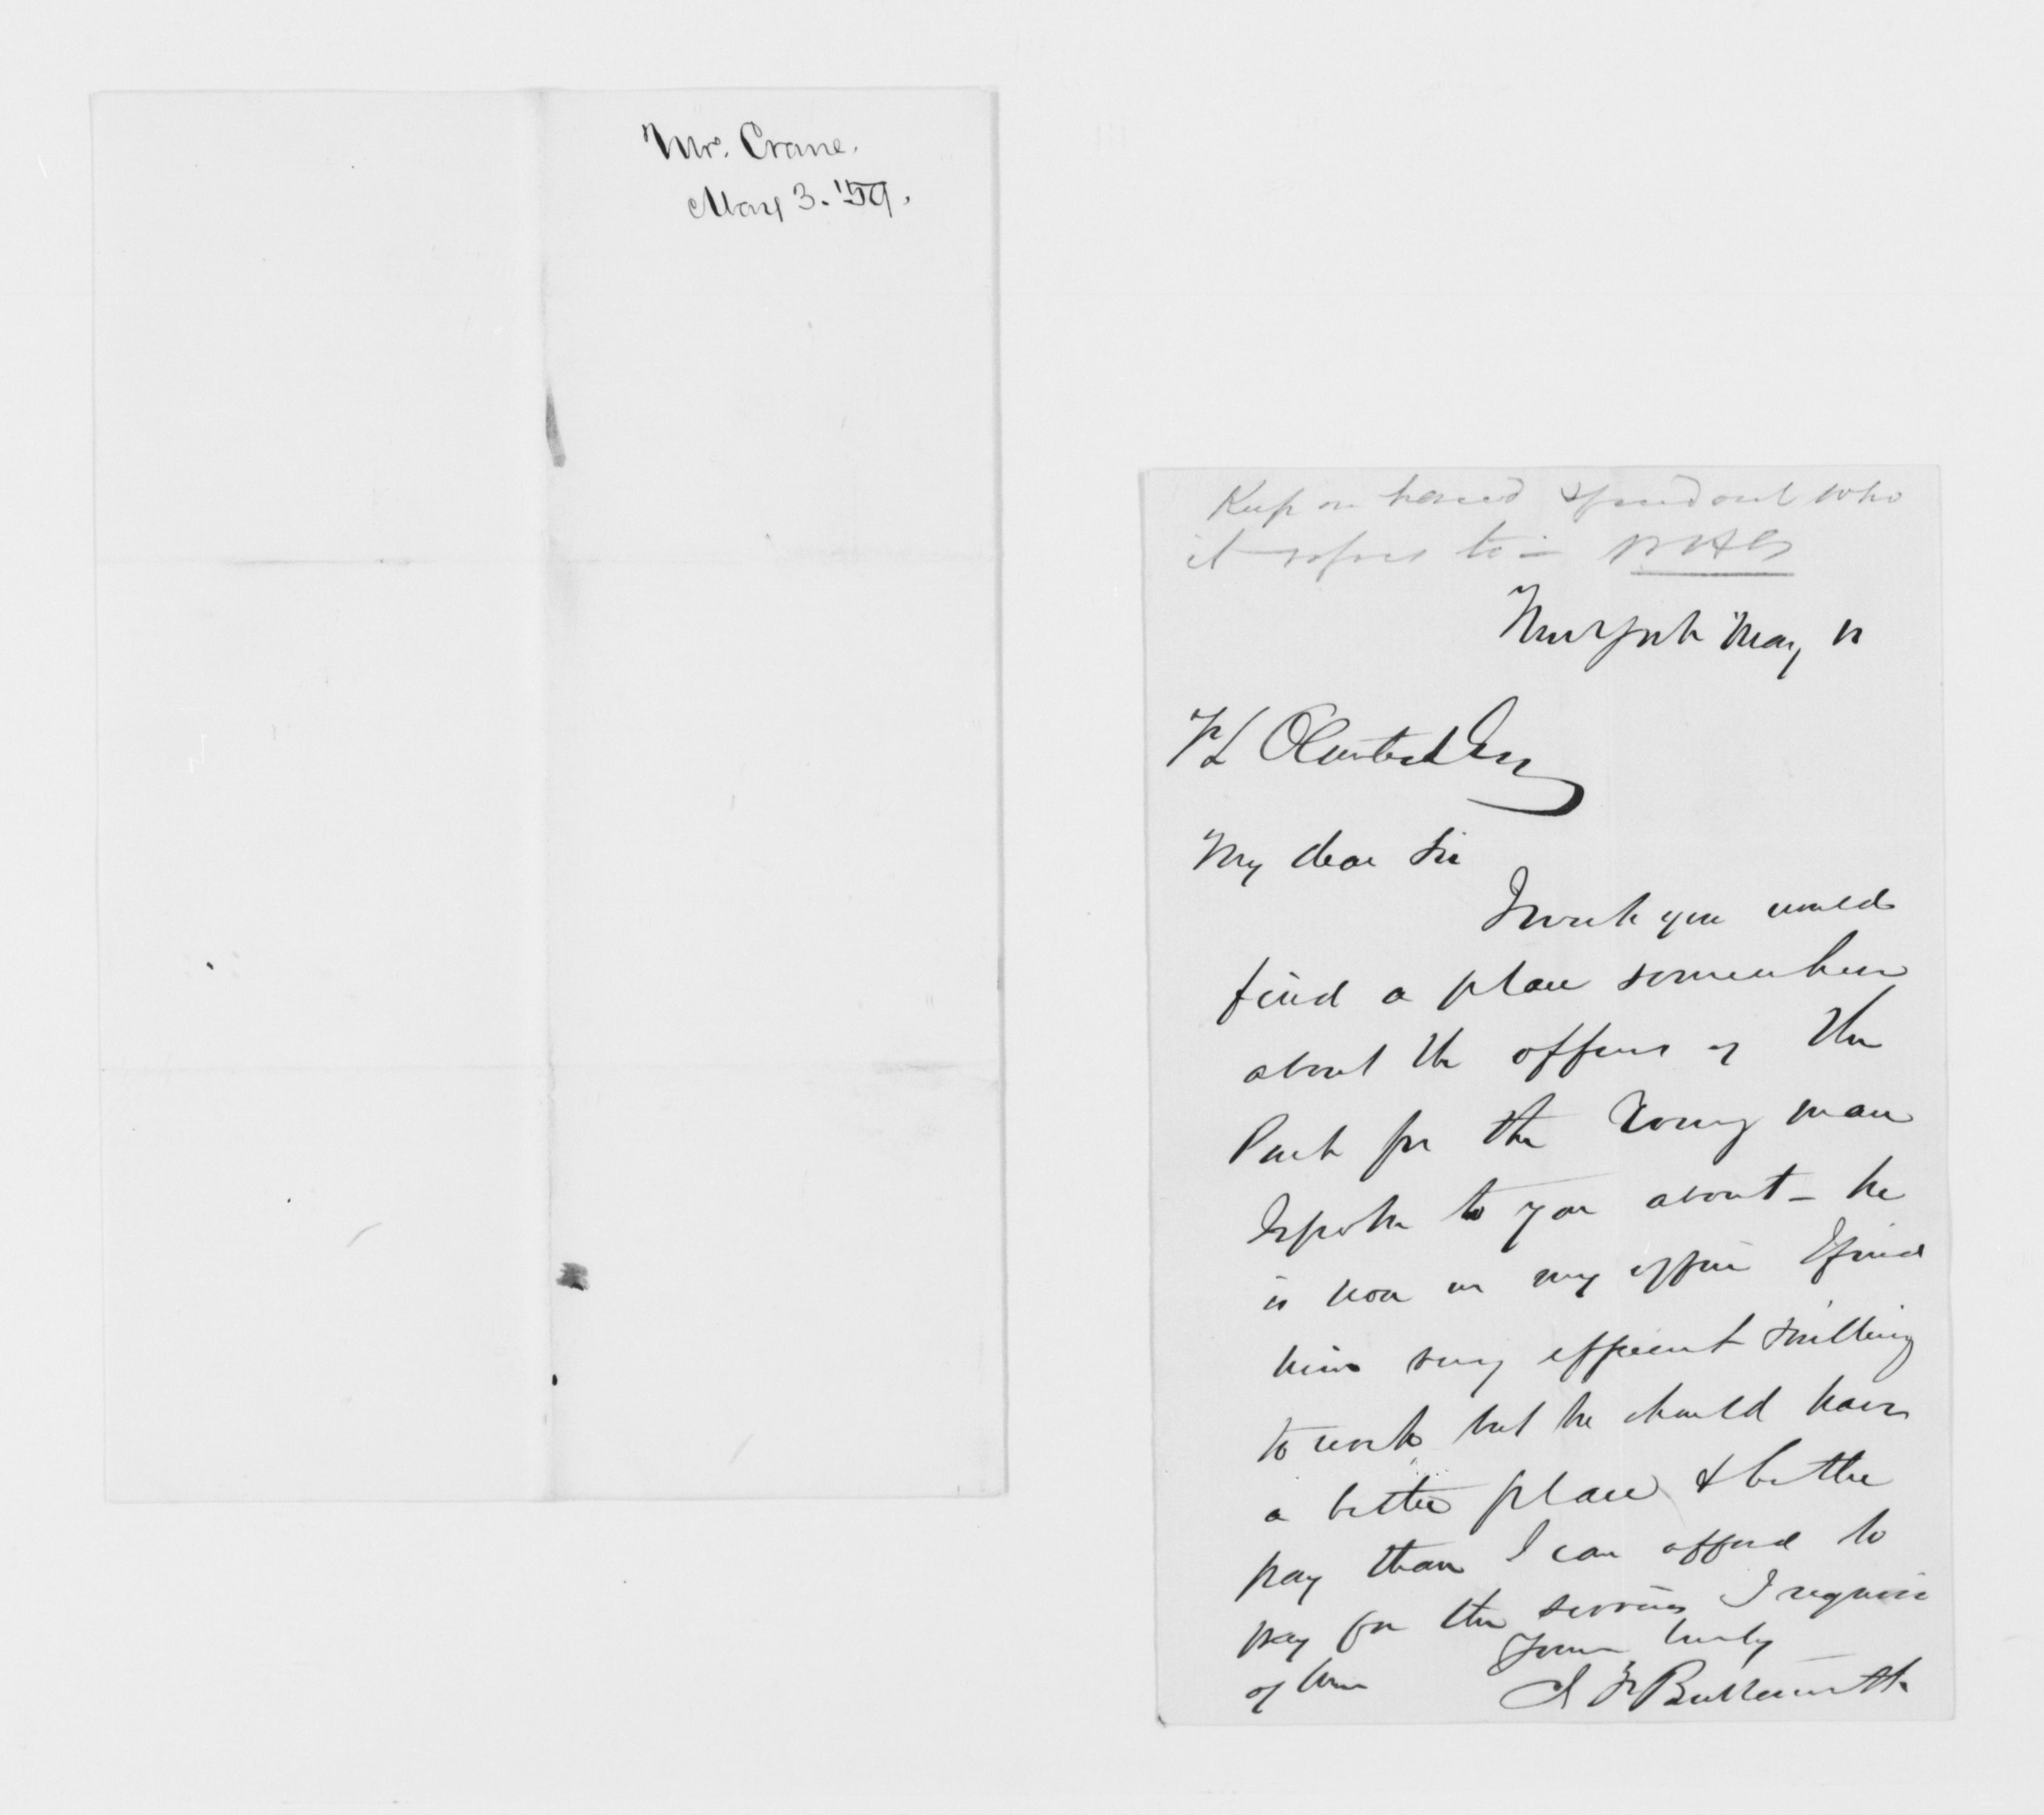 Mr. Crane.
May 3. '59.
Keep on hand & find out who
it refers to —
New York May 11
F L Olmsted Esq
My dear Sir
I wish you would
find a place somewhere
about the offices of the
Park for the Young man
I spoke to you about — he
is now in my office I find
him very efficient & willing
to work but he should have
a better place & better
pay than I can afford to
pay for the services I require
of him
Yours truly
J F Butterworth